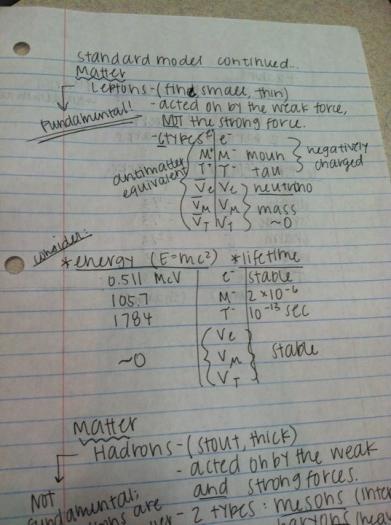 standard model continued...
Matter
Leptons - (fine, small, thin)
Fundamental!
- acted on by the weak force,
NOT the strong force.
- 6 types
e⁺ e⁻
M⁺ M⁻ moun
T⁺ T⁻ tau
negatively charged
antimatter equivalent
V̅e Ve neutrino
V̅M VM mass
V̅T VT ~0
consider:
*energy (E=mc²) *lifetime
0.511 MeV e⁻ stable
105.7 M⁻ 2×10⁻⁶
1784 T⁻ 10⁻¹³ sec
~0 Ve VM VT stable
Matter
Hadrons - (stout, thick)
- acted on by the weak
and strong forces.
NOT
fundamental;
- 2 types: mesons (inter